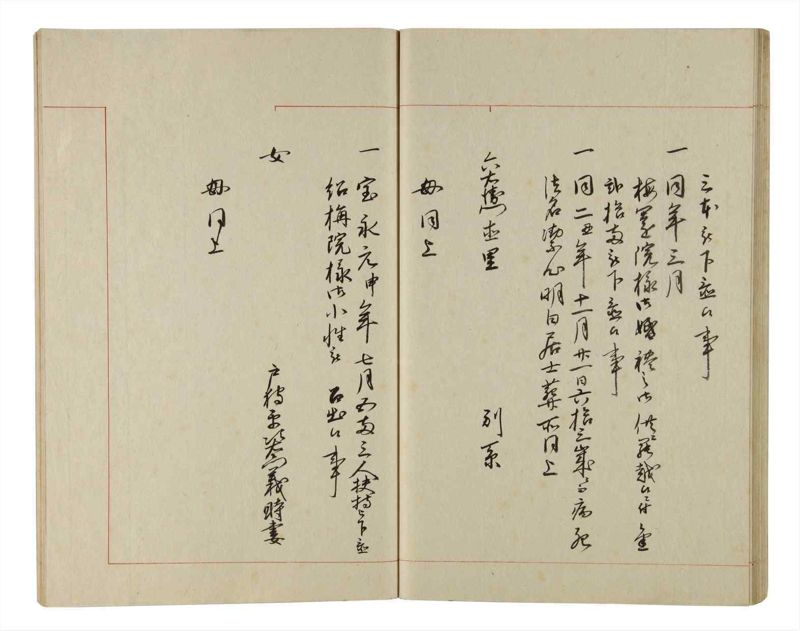 三本被下置候事
一 同年三月
梅嶺院様御婚禮之御供罷越候ニ付金
弐拾両被下置候事
一 同二五年十一月廿一日六拾三歳ニ而病死
法名 心明日居士葬所同上
六右衛門 里
別系
母同上
一 宝永元申年七月 五両三人扶持被下置
梅院様御小性被 召出候事
女
戸 義時妻
母同上